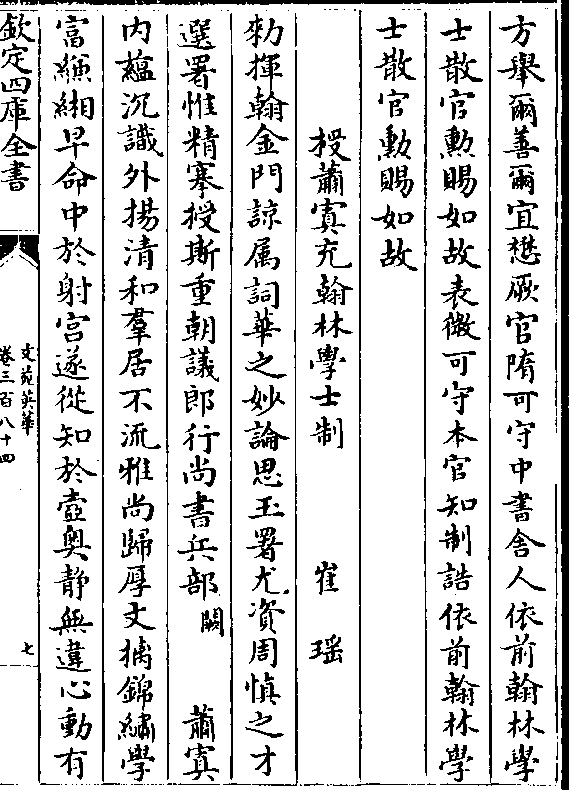 方舉爾善爾宜懋厥官隋可守中書舍人依前翰林學
士散官勲賜如故表微可守本官知制誥依前翰林學
士散官勲賜如故
授蕭寘充翰林學士制　崔瑶
勑揮翰金門諒属詞華之妙論思玉署尤資周慎之才
選署惟精搴授斯重朝議郎行尚書兵部闕　蕭寘
内藴沉識外揚清和羣居不流雅尚歸厚文摛錦繡學
富縑緗早命中於射宫遂從知於壼奥静無違心動有
欽定四庫全書
文苑英華
卷三百八十四
七